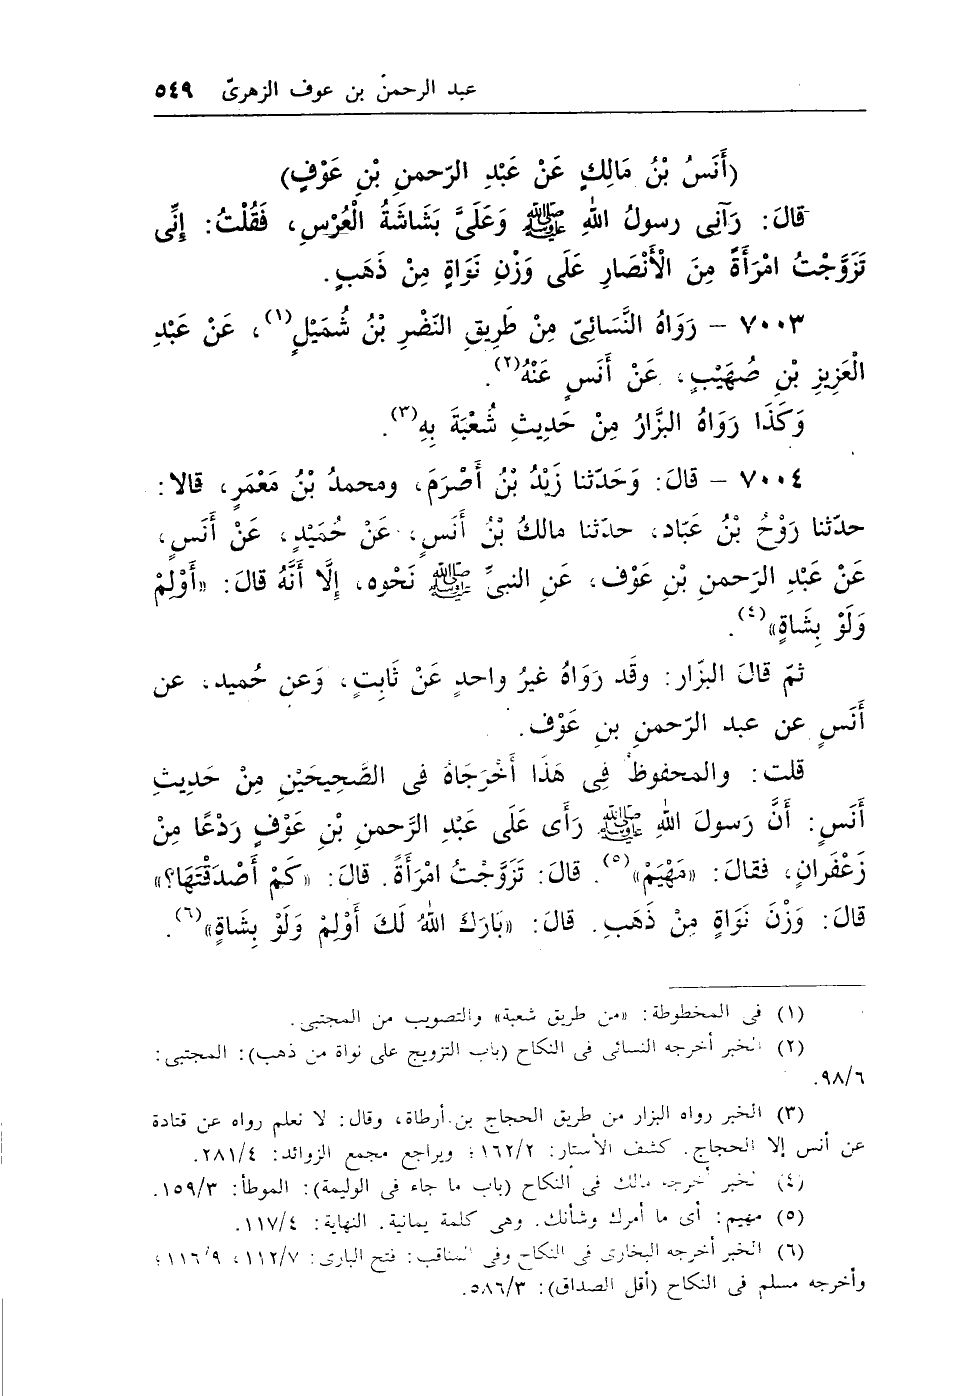 عبد الرحمن بن عوف الزهرى ٥٤٩
(أَنَسُ بْنُ مَالِكٍ عَنْ عَبْدِ الرّحمنِ بْنِ عَوْفٍ)
قالَ: رَآنِى رسولُ اللهِ ﷺ وَعَلَىَّ بَشَاشَةُ الْعُرْسِ، فَقُلْتُ: إِنِّى
تَزَوَّجْتُ امْرَأَةً مِنَ الْأَنْصَارِ عَلَى وَزْنِ نَوَاةٍ مِنْ ذَهَبٍ.
٧٠٠٣ – رَوَاهُ النَّسَائِىّ مِنْ طَرِيقِ النَضْرِ بْنُ شُمَيْلٍ(١)، عَنْ عَبْدِ
الْعَزِيزِ بْنِ صُهَيْبٍ، عَنْ أَنَسٍ عَنْهُ(٢).
وَكَذَا رَوَاهُ البَزَّارُ مِنْ حَدِيثِ شُعْبَةَ بِهِ(٣).
٧٠٠٤ – قالَ: وَحَدّثنا زَيْدُ بْنُ أَصْرَمَ، ومحمدُ بْنُ مَعْمَرٍ، قالا:
حدّثنا رَوْحُ بْنُ عبَاد، حدّثنا مالكُ بْنُ أَنَسٍ، عَنْ حُمَيْدٍ، عَنْ أَنَسٍ،
عَنْ عَبْدِ الرَحمنِ بْنِ عَوْف، عَنِ النبىِّ ﷺ نَحْوه، إِلَّا أَنَّهُ قالَ: «أَوْلِمْ
وَلَوْ بِشَاةٍ»(٤).
ثمّ قالَ البزّار: وقَد رَوَاهُ غيرُ واحدٍ عَنْ ثَابِتٍ، وَعن حُميد، عن
أَنَسٍ عن عبد الرّحمنِ بنِ عَوْف.
قلت: والمحفوظ فِى هَذَا أَخْرَجَاهُ فى الصَّحِيحَيْنِ مِنْ حَدِيثِ
أَنَسٍ: أَنَّ رَسولَ اللهِ ﷺ رَأى عَلَى عَبْدِ الرَّحمنِ بْنِ عَوْفٍ رَدْعًا مِنْ
زَعْفَرانٍ، فقالَ: «مَهْيَمْ»(٥). قالَ: تَزَوَّجْتُ امْرَأَةً. قالَ: «كَمْ أَصْدَقْتَهَا؟»
قالَ: وَزْنَ نَوَاةٍ مِنْ ذَهَبِ. قالَ: «بَارَكَ اللهُ لَكَ أَوْلِمْ وَلَوْ بِشَاةٍ»(٦).
(١) فى المخطوطة: «من طريق شعبة» والتصويب من المجتبى.
(٢) الخبر أخرجه النسائى فى النكاح (باب التزويج على نواة من ذهب): المجتبى:
٩٨/٦.
(٣) الخبر رواه البزار من طريق الحجاج بن أرطاة، وقال: لا نعلم رواه عن قتادة
عن أنس إلا الحجاج. كشف الأستار: ١٦٢/٢؛ ويراجع مجمع الزوائد: ٢٨١/٤.
(٤) الخبر أخرجه مالك فى النكاح (باب ما جاء فى الوليمة): الموطأ: ١٥٩/٣.
(٥) مهيم: أى ما أمرك وشأنك. وهى كلمة يمانية. النهاية: ١١٧/٤.
(٦) الخبر أخرجه البخارى فى النكاح وفى المناقب: فتح البارى: ١١٢/٧، ١١٦/٩؛
وأخرجه مسلم فى النكاح (أقل الصداق): ٥٨٦/٣.